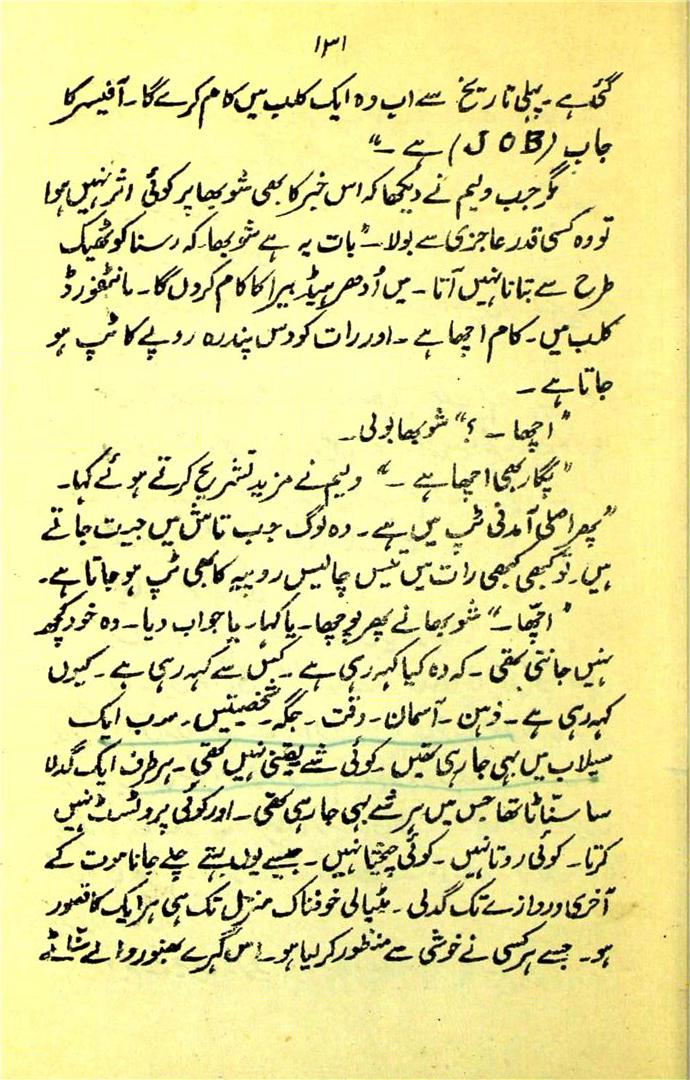 ۱۳۱
گئی ہے۔ پہلی تاریخ سے اب وہ ایک کلب میں کام کرے گا۔ آفیسر کا
جاب (JOB) ہے ۔"
مگر جب ولیم نے دیکھا کہ اس خبر کا بھی شوبھا پر کوئی اثر نہیں ہوا
تو وہ کسی قدر عاجزی سے بولا۔ "بات یہ ہے شوبھا۔ کہ رسنا کو ٹھیک
طرح سے بتانا نہیں آتا۔ میں اُدھر ہیڈ بیرا کا کام کروں گا۔ مانٹفورڈ
کلب میں۔ کام اچھا ہے ۔ اور رات کو دس پندرہ روپے کا ٹپ ہو
جاتا ہے ۔
"اچھا ۔ ؟" شوبھا بولی۔
"پگار بھی اچھا ہے ۔" ولیم نے مزید تشریح کرتے ہوئے کہا۔
"پھر اصلی آمدنی ٹپ میں ہے۔ وہ لوگ جب تاش میں جیت جاتے
ہیں۔ تو کبھی کبھی رات میں تیس چالیس روپیہ کا بھی ٹپ ہو جاتا ہے۔
"اچھّا۔" شوبھا نے پھر پوچھا۔ یا کہا۔ یا جواب دیا۔ وہ خود کچھ
نہیں جانتی تھی۔ کہ وہ کیا کہہ رہی ہے ۔ کس سے کہہ رہی ہے ۔ کیوں
کہہ رہی ہے ۔ ذہن۔ آسمان۔ وقت۔ جگہ۔ شخصیتیں۔ سب ایک
سیلاب میں بہی جا رہی تھیں۔ کوئی شے یقینی نہیں تھی۔ ہر طرف ایک گدلا
سا سنّاٹا تھا جس میں ہر شے بہی جا رہی تھی۔ اور کوئی پروٹسٹ نہیں
کرتا۔ کوئی روتا نہیں۔ کوئی چیختا نہیں۔ جیسے یوں بہتے چلے جانا موت کے
آخری دروازے تک گدلی۔ مٹیالی خوفناک منزل تک ہی ہر ایک کا قصور
ہو۔ جسے ہر کسی نے خوشی سے منظور کر لیا ہو۔ اس گہرے بھنور والے سناٹے